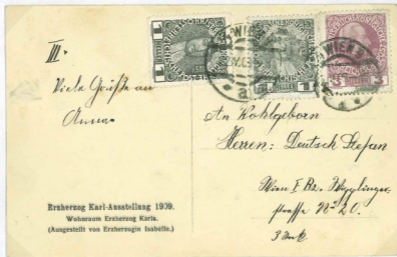 III.
Viele Grüße an
Anna
An Wohlgeborn
Herren: Deutsch Stefan
Wien I Bz. Wipplinger-
strasse No 20.
Erzherzog Karl-Ausstellung 1909.
Wohnraum Erzherzog Karls.
(Ausgestellt von Erzherzogin Isabelle.)
1
1
WIEN